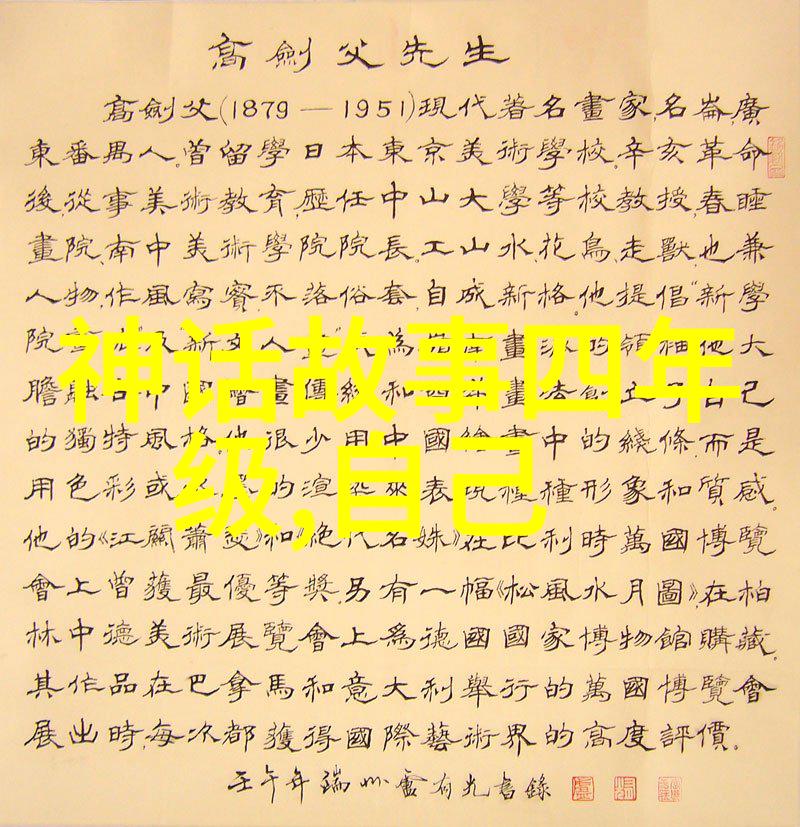 高劍父先生
高劍父(1879—1951)現代著名畫家,名崙,廣
東番禺人。曾留學日本東京美術學校。辛亥革命
後,從事美術教育,歷任中山大學等校教授,春睡
畫院、南中美術學院院長。工山水、花鳥、走獸,也兼
人物,作風寫實,不落俗套,自成新格。他提倡"新學
院 新文人畫" 為 南畫派的領袖。他大
膽融 中國 畫傳統和西 畫法,創立了自己
的獨特風格。他很少用中國繪畫中的綫條,而是
用色彩或 的渲染來表現種種形象和質感。
他的《江關蕭瑟》和《絕代名姝》在比利時萬國博覽
會上曾獲最優等獎。另有一幅《松風水月圖》,在柏
林中德美術展覽會上為德國國家博物館購藏。
其作品在巴拿馬和意大利舉行的萬國博覽會
展出時,每次都獲得國際藝術界的高度評價。
壬午年端州盧有光書錄
神话故事四年
级,自己